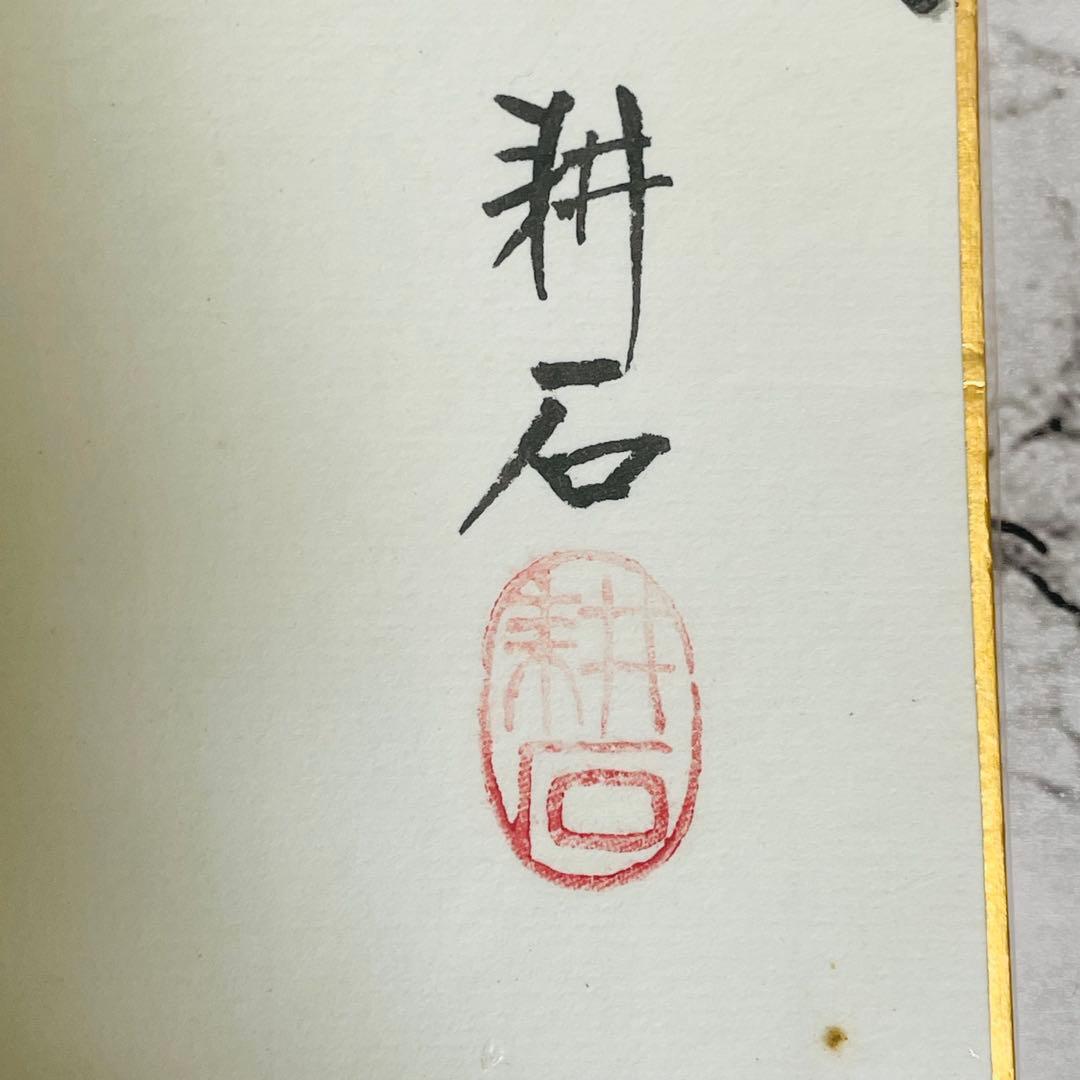 耕石
耕石